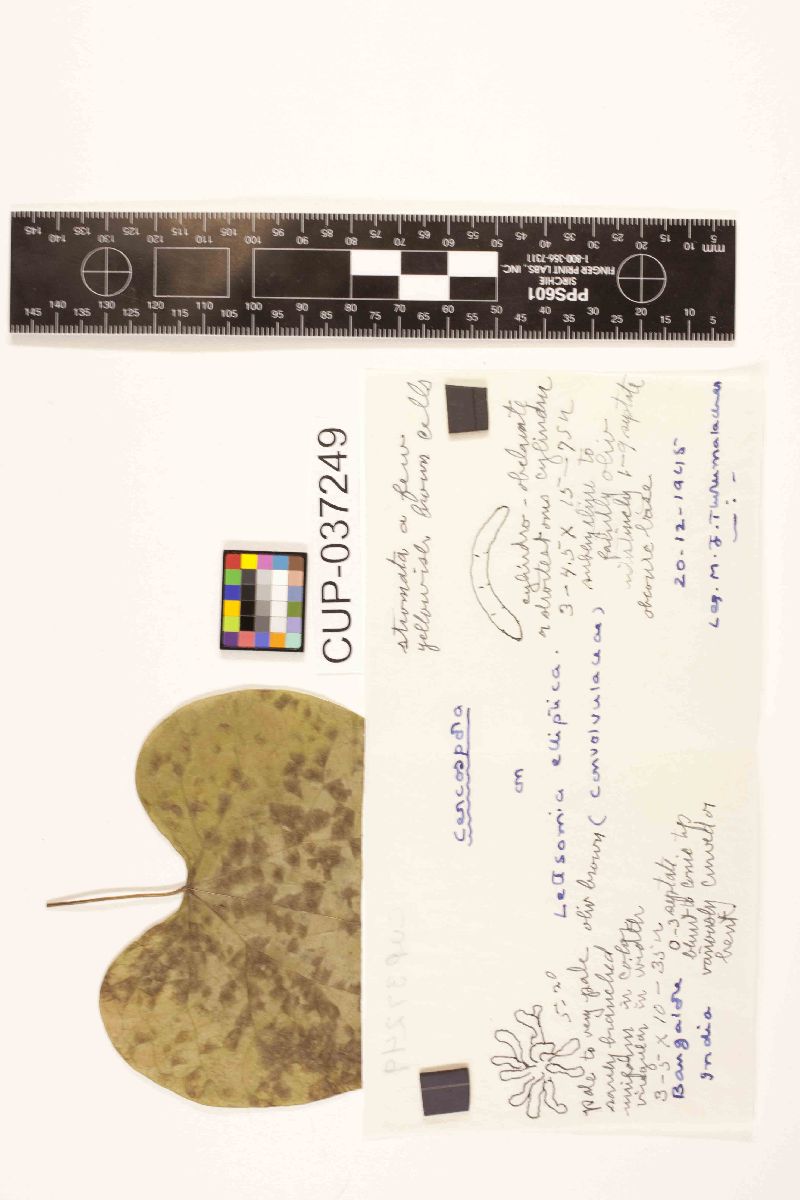 145 140 135 130 125 120 115 110 105 100 95 90 85 80 75 70 65 60 55 50 45 40 35 30 25 20 15 10 5 mm
PPS601
SIRCHIE
FINGER PRINT LABS., INC.
1-800-356-7311
145 140 135 130 125 120 115 110 105 100 95 90 85 80 75 70 65 60 55 50 45 40 35 30 25 20 15 10 5
CUP-037249
stromata a few
yellowish brown cells
Cercospora
on
Lettsomia elliptica.
(Convolvulaceae)
cylindro-obclavate
cylindric
3-4.5 X 15-75 u
subhyaline to
palely oliv
1-9 septate
obconic base
5-20
pale to very pale oliv brown
rarely branched
uniform in color
irregular in width
3-5 X 10-35 u
0-3 septate
blunt to conic tip
variously curved or
bent
Bangalore
India
20-12-1945
Leg. M. J. Thirumalachar